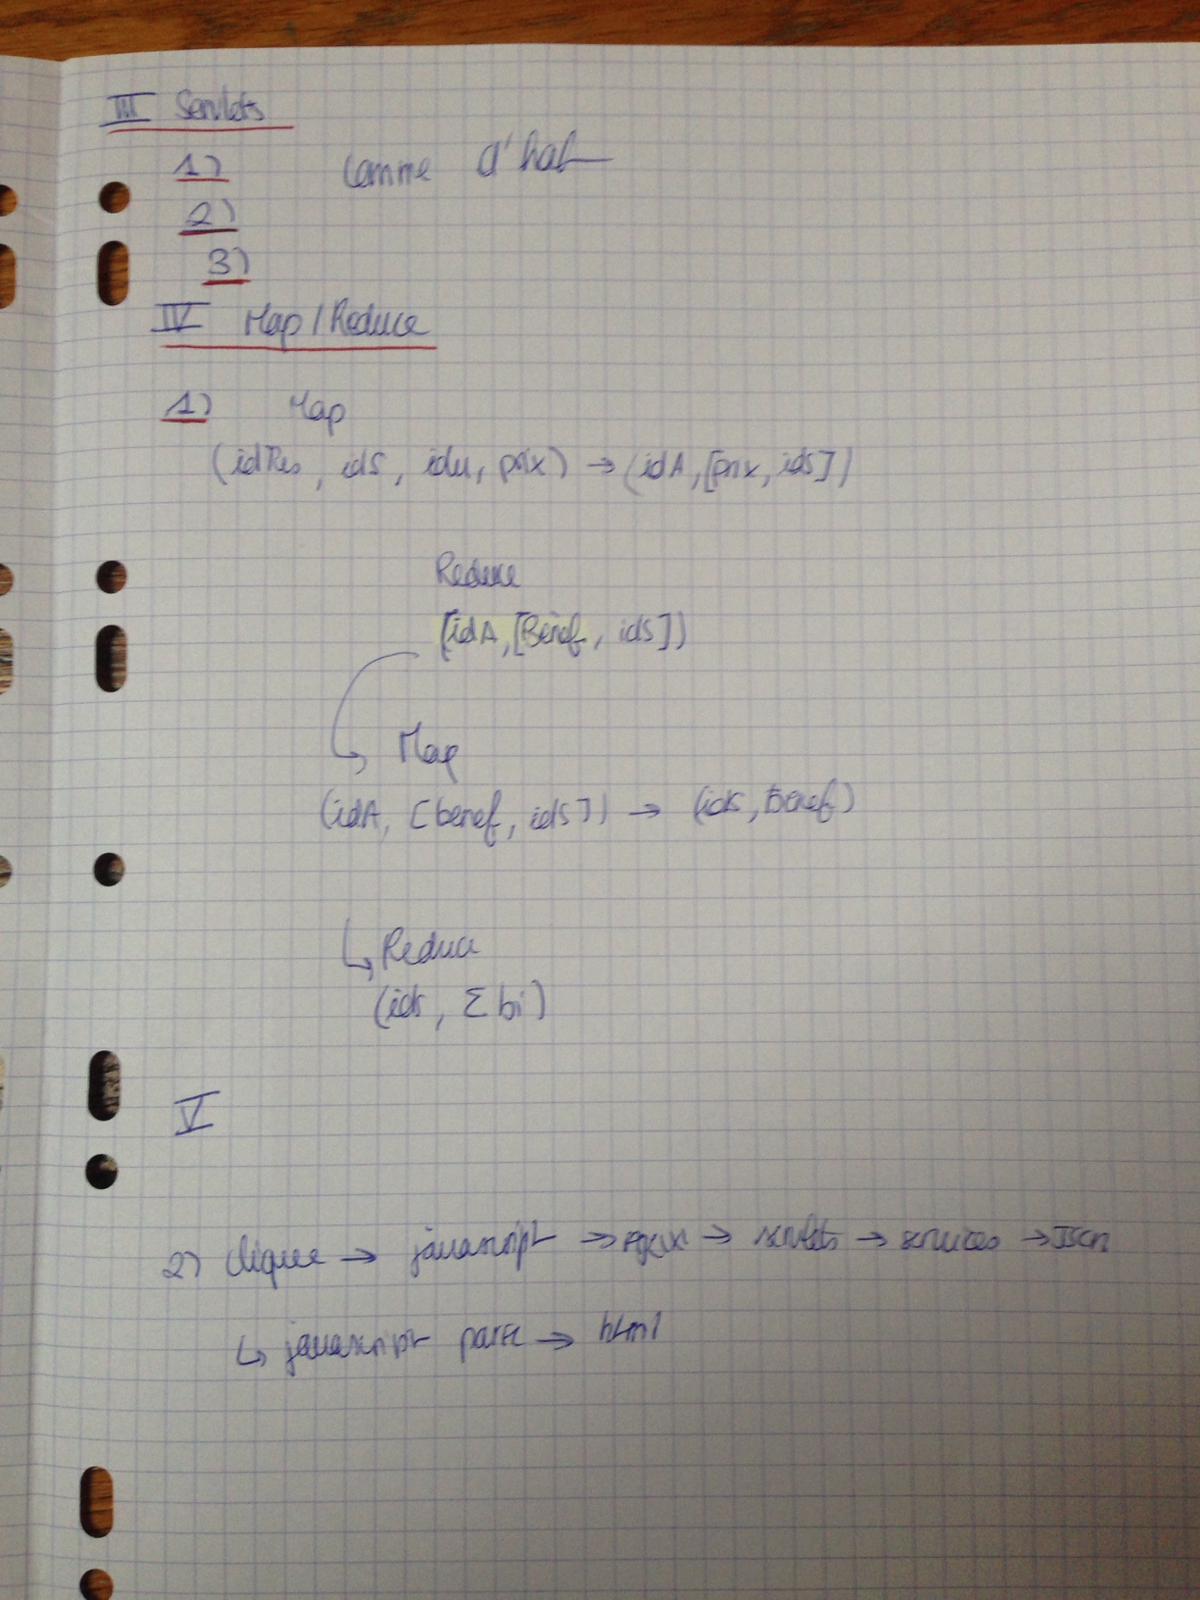 III Servlets
1) comme d'hab
2)
3)
IV Map/Reduce
1) Map
(idRes, idS, idu, prix) → (idA, [prix, idS])
Reduce
(idA, [Benef, idS])
Map
(idA, [benef, idS]) → (idS, Benef)
↳ Reduce
(idS, Σ bi)
V
2) clique → javascript → Ajax → servlets → services → JSon
↳ javascript parse → html